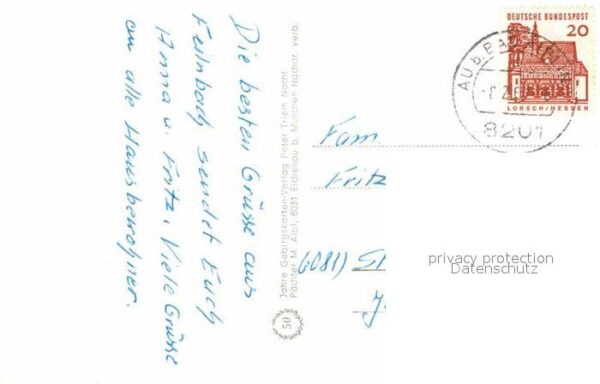 Die besten Grüsse aus
Feilnbach sendet Euch
Anna u. Fritz. Viele Grüsse
an alle Hausbewohner.
50 Jahre Gebirgskarten-Verlag Peter Triem Nachf.
Pächter M. Aigl, 8031 Eichenau b. München Nachdr. verb.
Fam.
Fritz
DEUTSCHE BUNDESPOST
20
LORSCH/HESSEN
AU b. BAD
8201
privacy protection
Datenschutz